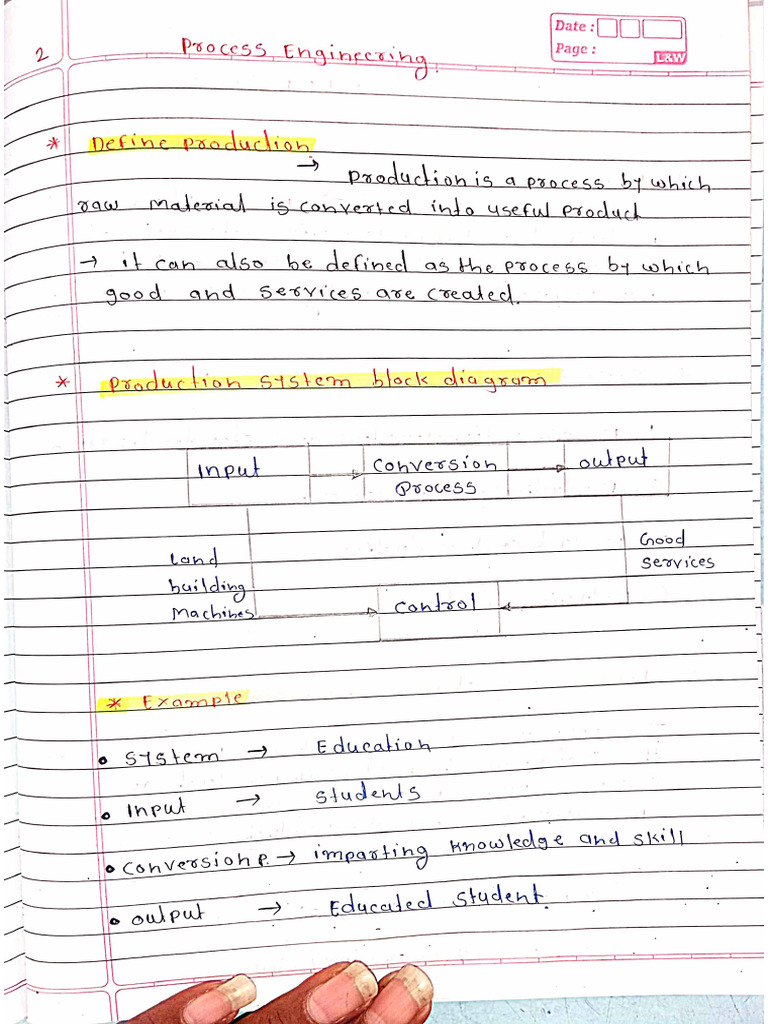 2
Process Engineering.
Date :
Page :
L&W
* Define production
→ production is a process by which
raw material is converted into useful product
→ it can also be defined as the process by which
good and services are created.
* production system block diagram
input
conversion
process
output
Land
building
Machines
Good
services
control
* Example
• system → Education
• input → students
• conversion p. → imparting knowledge and skill
• output → Educated student.